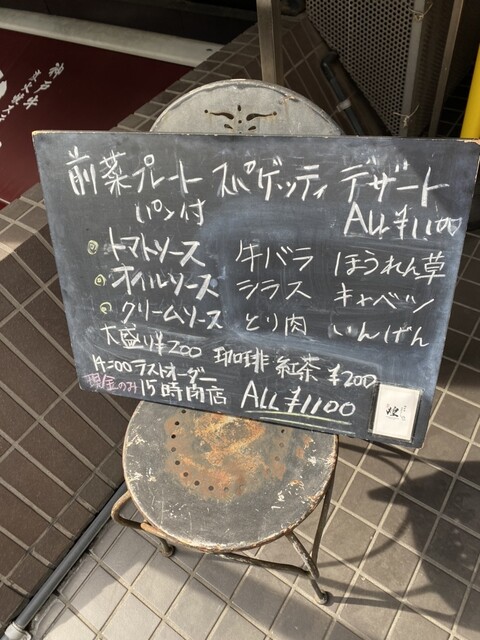 前菜プレート スパゲッティ デザート
パン付 ALL ¥1100
◎トマトソース 牛バラ ほうれん草
◎オイルソース シラス キャベツ
◎クリームソース とり肉 いんげん
大盛り¥200 珈琲 紅茶 ¥200
14:00ラストオーダー
現金のみ 15時閉店 ALL ¥1100